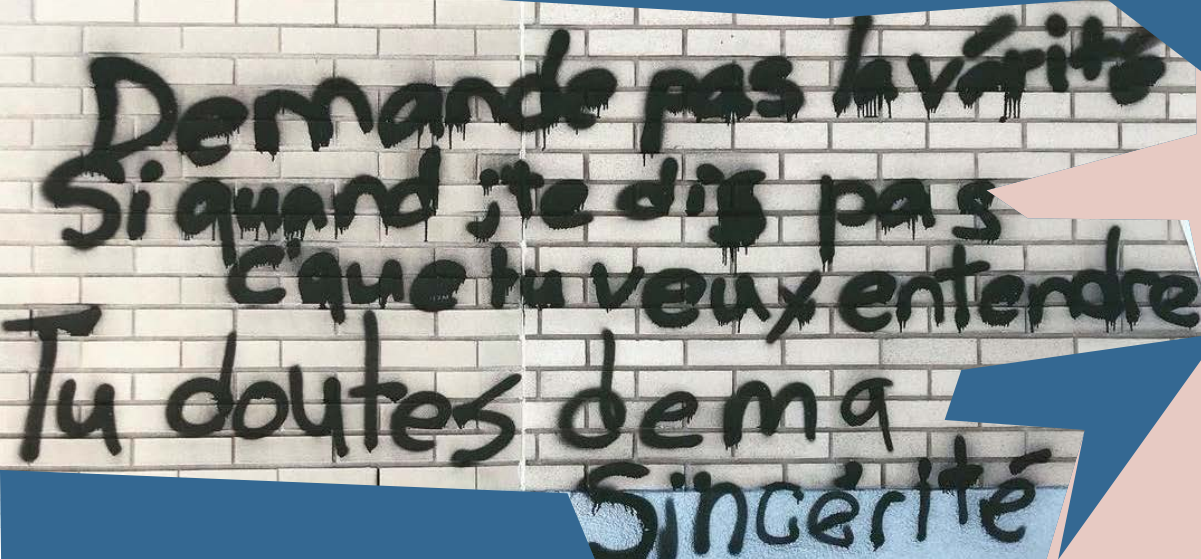 Demande pas la vérité
Si quand j'te dis pas
c'que tu veux entendre
Tu doutes de ma
Sincérité